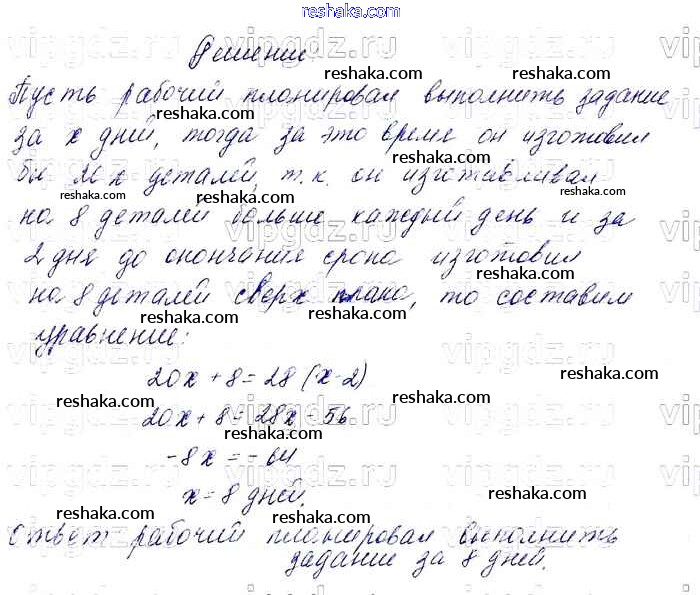 reshaka.com
Решение
Пусть рабочий планировал выполнить задание
за x дней, тогда за это время он изготовил
бы 20x деталей, т.к. он изготавливал
на 8 деталей больше каждый день и за
2 дня до окончания срока изготовил
на 8 деталей сверх плана, то составим
уравнение:
20x + 8 = 28 (x-2)
20x + 8 = 28x - 56
-8x = -64
x = 8 дней.
Ответ рабочий планировал выполнить
задание за 8 дней.